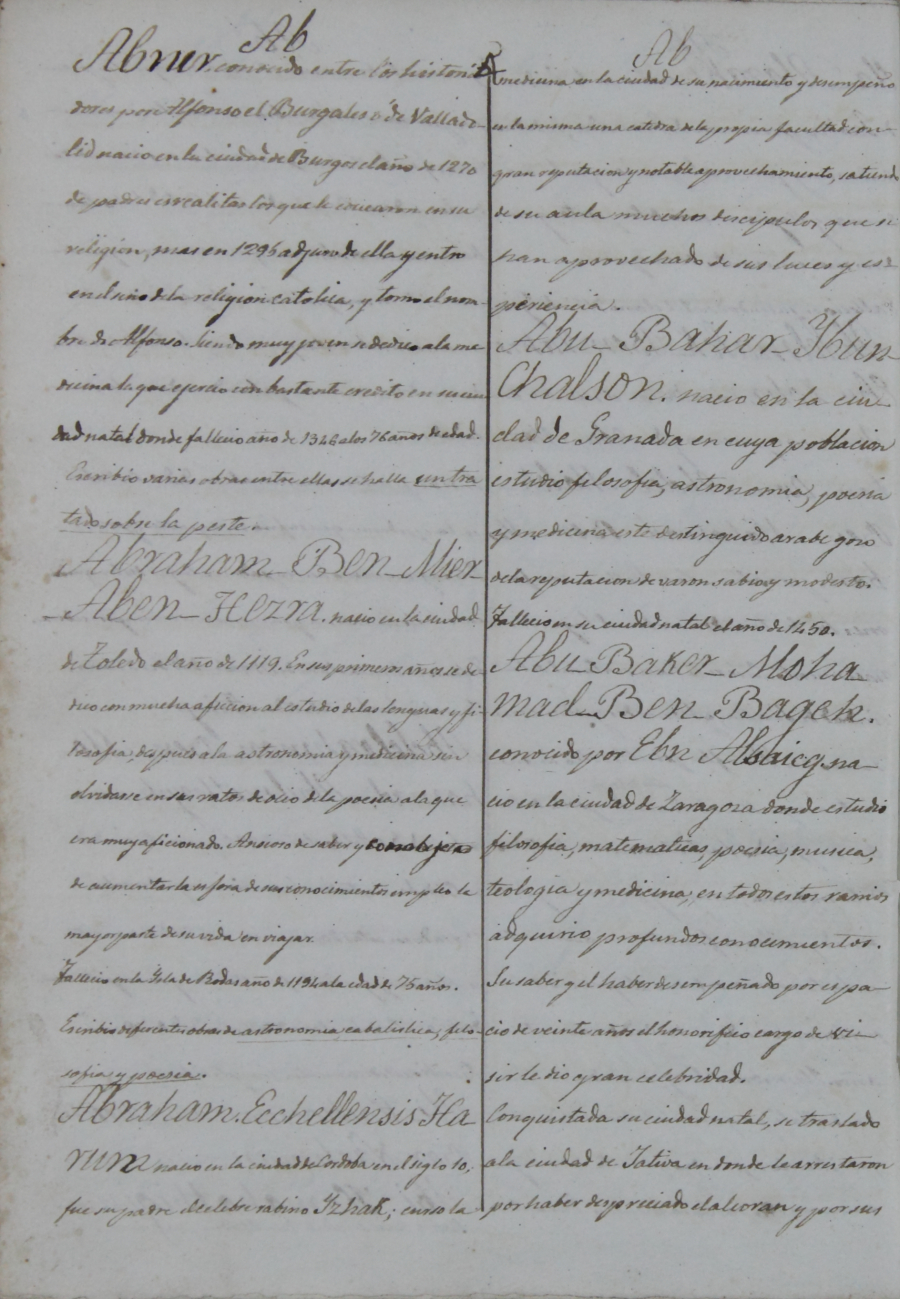 Ab
Abner. conocido entre los historia
dores por Alfonso el Burgales ó de Vallado-
lid nacio en la ciudad de Burgos el año de 1270
de padres isrealitas los que le educaron en su
religion, mas en 1295 adjuro de ella y entro
en el seno de la religion catolica, y tomo el nom-
bre de Alfonso. Siendo muy joven se dedico a la me
dicina la que ejercio con bastante credito en su ciu
dad natal donde fallecio año de 1346 a los 76 años de edad.
Escribio varias obras entre ellas se halla un tra
tado sobre la peste.
Abraham Ben Mier
Aben Hezra. nacio en la ciudad
de Toledo el año de 1119. En sus primeros años se de-
dico con mucha aficion al estudio de las lenguas y fi-
losofia, despues a la astronomia y medicina sin
olvidarse en sus ratos de ocio de la poesia a la que
era muy aficionado. Ansioso de saber y con objeto
de aumentar la esfera de sus conocimientos empleo la
mayor parte de su vida en viajar.
Fallecio en la Isla de Rodas año de 1194 a la edad de 75 años.
Escribio diferentes obras de astronomia, cabalistica, filo-
sofia y poesia.
Abraham Ecchellensis Ha
rum nacio en la ciudad de Cordoba en el siglo 10,
fue su padre el celebre rabino Izhak; curso la
Ab
medicina en la ciudad de su nacimiento y desempeño
en la misma una catedra de la propia facultad con
gran reputacion y notable aprovechamiento, saliendo
de su aula muchos discipulos que se
han aprovechado de sus luces y es-
periencia.
Abu Bahar Ybun
Chalson. nacio en la ciu-
dad de Granada en cuya poblacion
estudio filosofia, astronomia, poesia
y medicina este distinguido arabe gozo
de la reputacion de varon sabio y modesto.
Fallecio en su ciudad natal el año de 1450.
Abu Baker Moha
mad Ben Bageh.
conocido por Ebn Alsaieg na-
cio en la ciudad de Zaragoza donde estudio
filosofia, matematicas, poesia, musica,
teologia y medicina, en todos estos ramos
adquirio profundos conocimientos.
Su saber y el haber desempeñado por espa-
cio de veinte años el honorifico cargo de vi-
sir le dio gran celebridad.
Conquistada su ciudad natal, se traslado
a la ciudad de Jativa en donde le arrestaron
por haber despreciado el alcoran y por sus